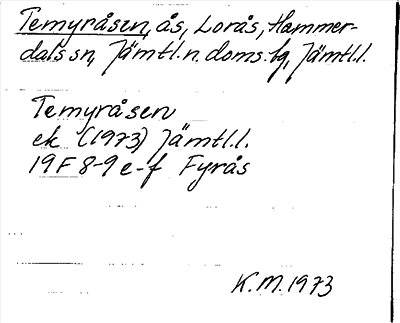 Temyråsen, ås, Lorås, Hammer-
dals sn, Jämtl. n. doms. bg, Jämtl.l.
Temyråsen
ek (1973) Jämtl.l.
19F 8-9 e-f Fyrås
K.M. 1973